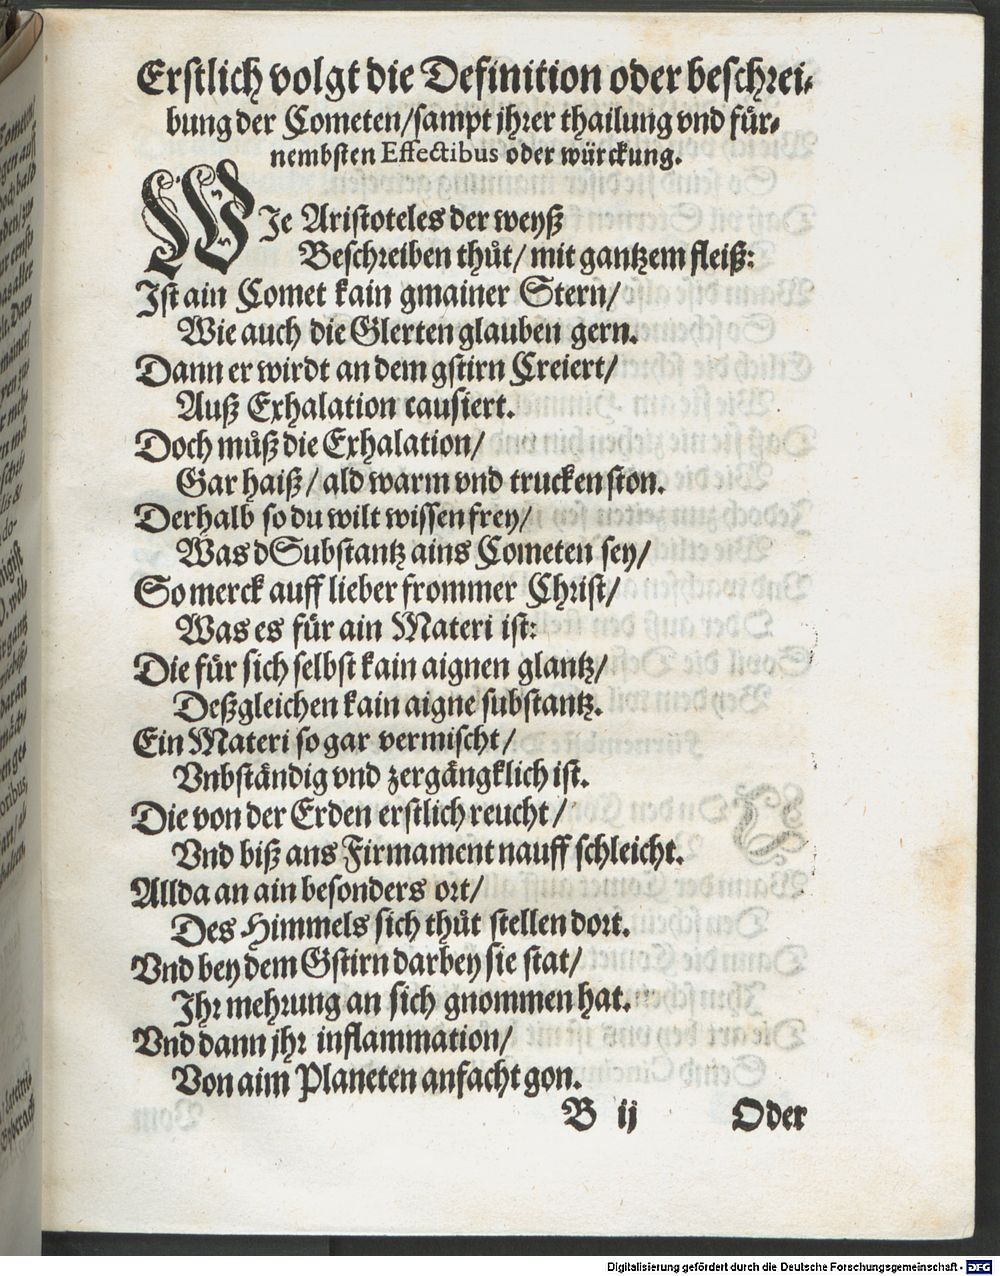 Erstlich volgt die Definition oder beschrei⸗
bung der Cometen/ sampt jhrer thailung vnd für⸗
nembsten Effectibus oder würckung.
WIe Aristoteles der weyß
Beschreiben thůt/ mit gantzem fleiß:
Ist ain Comet kain gmainer Stern/
Wie auch die Glerten glauben gern.
Dann er wirdt an dem gstirn Creiert/
Auß Exhalation causiert.
Doch můß die Exhalation/
Gar haiß/ ald warm vnd trucken ston.
Derhalb so du wilt wissen frey/
Was dSubstantz ains Cometen sey/
So merck auff lieber frommer Christ/
Was es für ain Materi ist:
Die für sich selbst kain aignen glantz/
Deßgleichen kain aigne substantz.
Ein Materi so gar vermischt/
Vnbständig vnd zergängklich ist.
Die von der Erden erstlich reucht/
Vnd biß ans Firmament nauff schleicht.
Allda an ain besonders ort/
Des Himmels sich thůt stellen dort.
Vnd bey dem Gstirn darbey sie stat/
Ihr mehrung an sich gnommen hat.
Vnd dann jhr inflammation/
Von aim Planeten anfacht gon.
B ij Oder
Digitalisierung gefördert durch die Deutsche Forschungsgemeinschaft - DFG